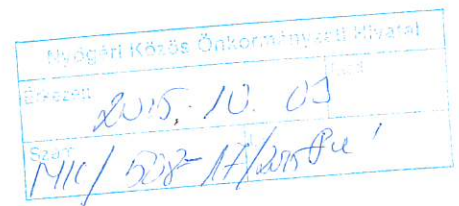 Nyőgéri Közös Önkormányzati Hivatal
Érkezett
2015. 10. 09
Szám
MIC/ 508-17/2015 Pü